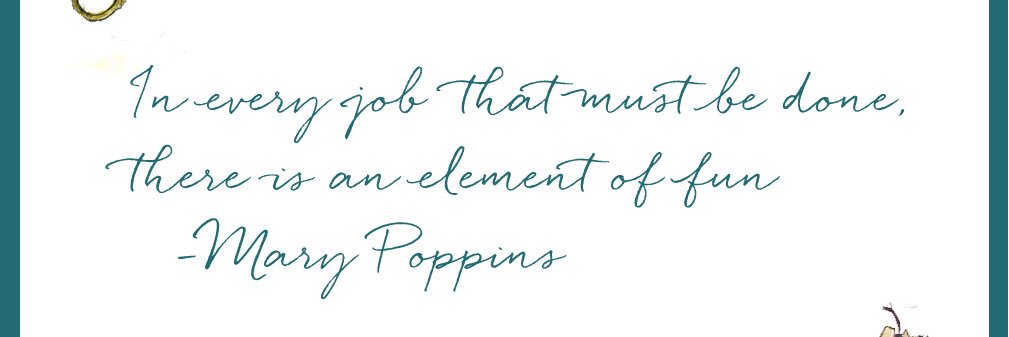 In every job that must be done,
there is an element of fun
-Mary Poppins